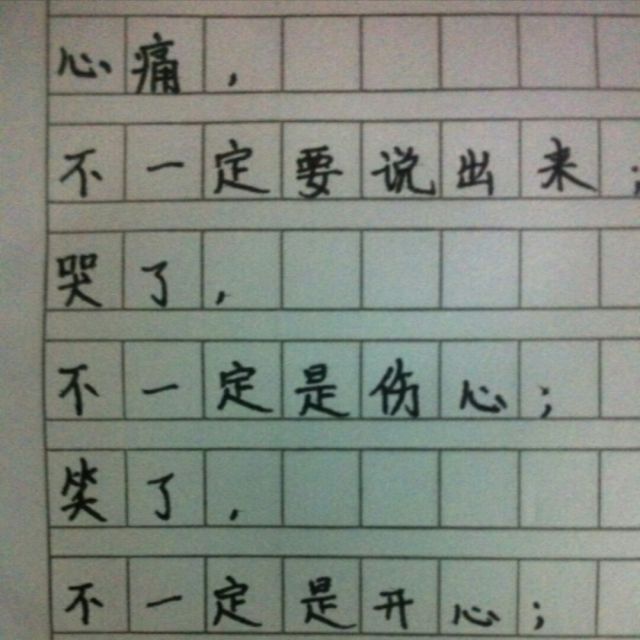 心痛，
不一定要说出来；
哭了，
不一定是伤心；
笑了，
不一定是开心；